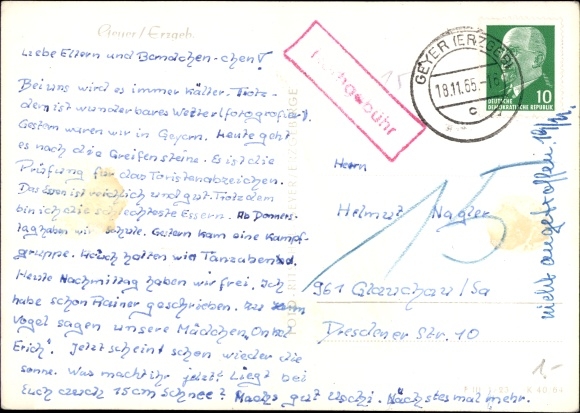 Geyer/Erzgeb.
Liebe Eltern und Berndchen-chen!
Bei uns wird es immer kälter. Trotz-
dem ist wunderbares Wetter! (fotografier!)
Gestern waren wir in Geyern. Heute geht
es nach die Greifensteine. Es ist die
Prüfung für das Toristenabzeichen.
Das Essen ist reichlich und gut. Trotzdem
bin ich die schlechteste Essern. Ab Donners-
tag haben wir Schule. Gestern kam eine Kampf-
gruppe. Heuch hatten wir Tanzabend.
Heute Nachmittag haben wir frei. Ich
habe schon Rainer geschrieben. Zu
Vogel sagen unsere Mädchen „Onkel
Erich". Jetzt scheint schon wieder die
Sonne. Was macht ihr jetzt? Liegt bei
Euch czech 15cm Schnee? Machs gut Uschi. Nächstes mal mehr.
Nachgebühr
15
GEYER (ERZGEB)
18.11.65.-18
c
DEUTSCHE
DEMOKRATISCHE REPUBLIK
10
Herrn
Helmut Nagler
15
961 Glauchau/Sa
Dresdener Str. 10
nicht angetroffen
1.-